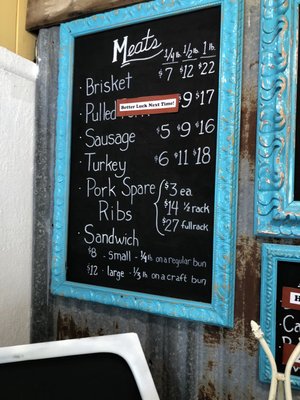 Meats
1/4 lb. 1/2 lb. 1 lb.
· Brisket $7 $12 $22
· Pulled $9 $17
Better Luck Next Time!
· Sausage $5 $9 $16
· Turkey $6 $11 $18
· Pork Spare Ribs
$3 ea.
$14 1/2 rack
$27 full rack
· Sandwich
$8 - small - 1/4 lb on a regular bun
$12 - large - 1/3 lb on a craft bun